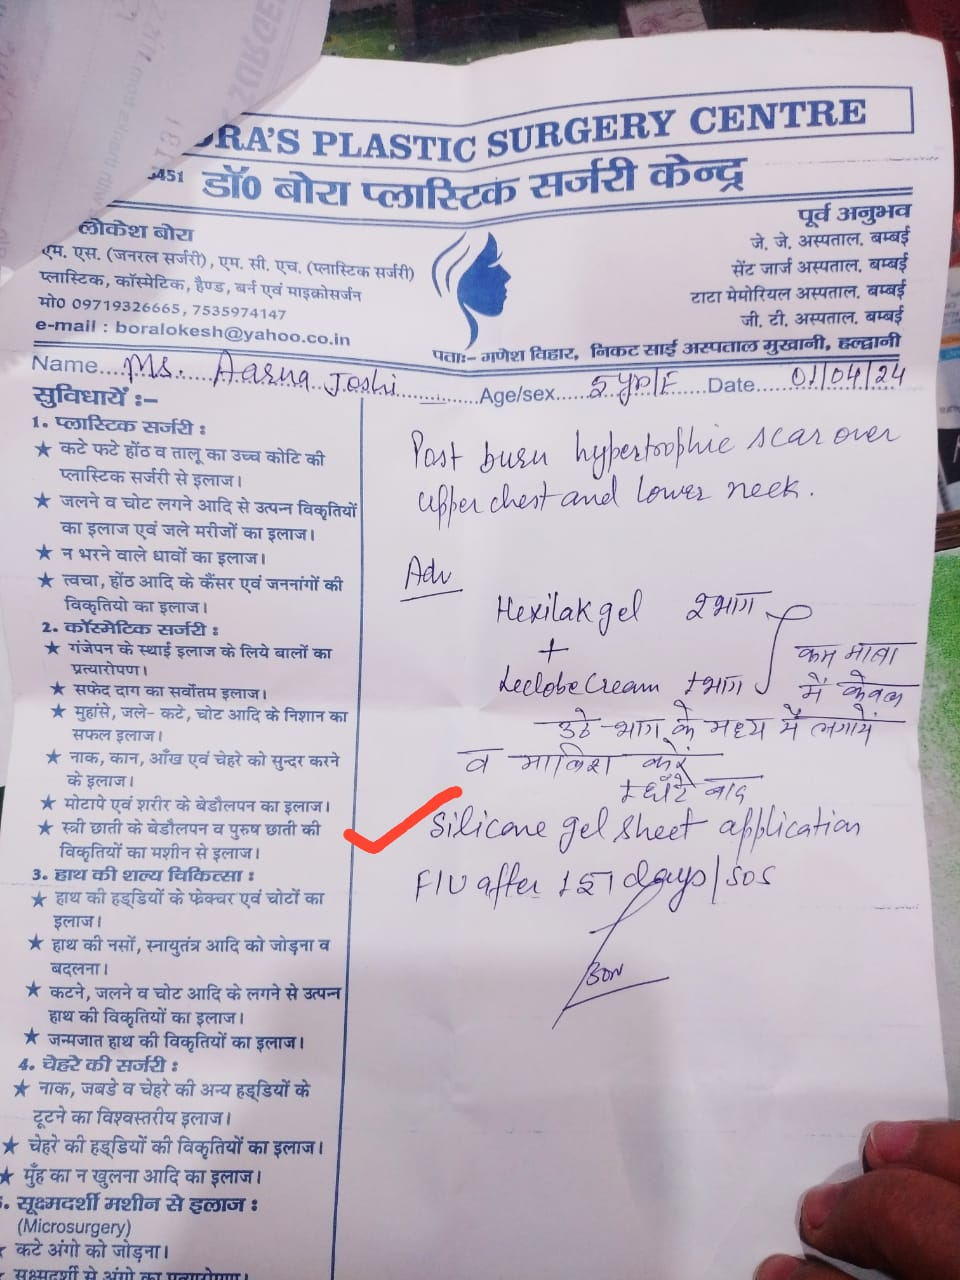 RA'S PLASTIC SURGERY CENTRE
451 डॉ0 बोरा प्लास्टिक सर्जरी केन्द्र
लोकेश बोरा
एम. एस. (जनरल सर्जरी), एम. सी. एच. (प्लास्टिक सर्जरी)
प्लास्टिक, कॉस्मेटिक, हैण्ड, बर्न एवं माइक्रोसर्जन
मो0 09719326665, 7535974147
e-mail : boralokesh@yahoo.co.in
पूर्व अनुभव
जे. जे. अस्पताल, बम्बई
सेंट जार्ज अस्पताल, बम्बई
टाटा मेमोरियल अस्पताल, बम्बई
जी. टी. अस्पताल, बम्बई
पताः- गणेश विहार, निकट साई अस्पताल मुखानी, हल्द्वानी
Name Ms. Aarna Joshi Age/sex 5yr/F Date 01/04/24
सुविधायें :-
1. प्लास्टिक सर्जरी :
★ कटे फटे होंठ व तालू का उच्च कोटि की
प्लास्टिक सर्जरी से इलाज।
★ जलने व चोट लगने आदि से उत्पन्न विकृतियों
का इलाज एवं जले मरीजों का इलाज।
★ न भरने वाले धावों का इलाज।
★ त्वचा, होंठ आदि के कैंसर एवं जननांगों की
विकृतियो का इलाज।
2. कॉस्मेटिक सर्जरी :
★ गंजेपन के स्थाई इलाज के लिये बालों का
प्रत्यारोपण।
★ सफेद दाग का सर्वोतम इलाज।
★ मुहांसे, जले- कटे, चोट आदि के निशान का
सफल इलाज।
★ नाक, कान, आँख एवं चेहरे को सुन्दर करने
के इलाज।
★ मोटापे एवं शरीर के बेडौलपन का इलाज।
★ स्त्री छाती के बेडौलपन व पुरुष छाती की
विकृतियों का मशीन से इलाज।
3. हाथ की शल्य चिकित्सा :
★ हाथ की हड्डियों के फेक्चर एवं चोटों का
इलाज।
★ हाथ की नसों, स्नायुतंत्र आदि को जोड़ना व
बदलना।
★ कटने, जलने व चोट आदि के लगने से उत्पन्न
हाथ की विकृतियों का इलाज।
★ जन्मजात हाथ की विकृतियों का इलाज।
4. चेहरे की सर्जरी :
★ नाक, जबडे व चेहरे की अन्य हड्डियों के
टूटने का विश्वस्तरीय इलाज।
★ चेहरे की हड्डियों की विकृतियों का इलाज।
★ मुँह का न खुलना आदि का इलाज।
. सूक्ष्मदर्शी मशीन से इलाज :
(Microsurgery)
कटे अंगो को जोड़ना।
सूक्ष्मदर्शी से अंगो का प्रत्यारोपण।
Post burn hypertrophic scar over
upper chest and lower neck.
Adv
Hexilak gel 2 भाग
+
Cream 1 भाग
कम मात्रा
में केवल
उठे भाग के मध्य में लगायें
व मालिश करें
1 घंटे बाद
Silicone gel sheet application
F/U after 15 days/SOS